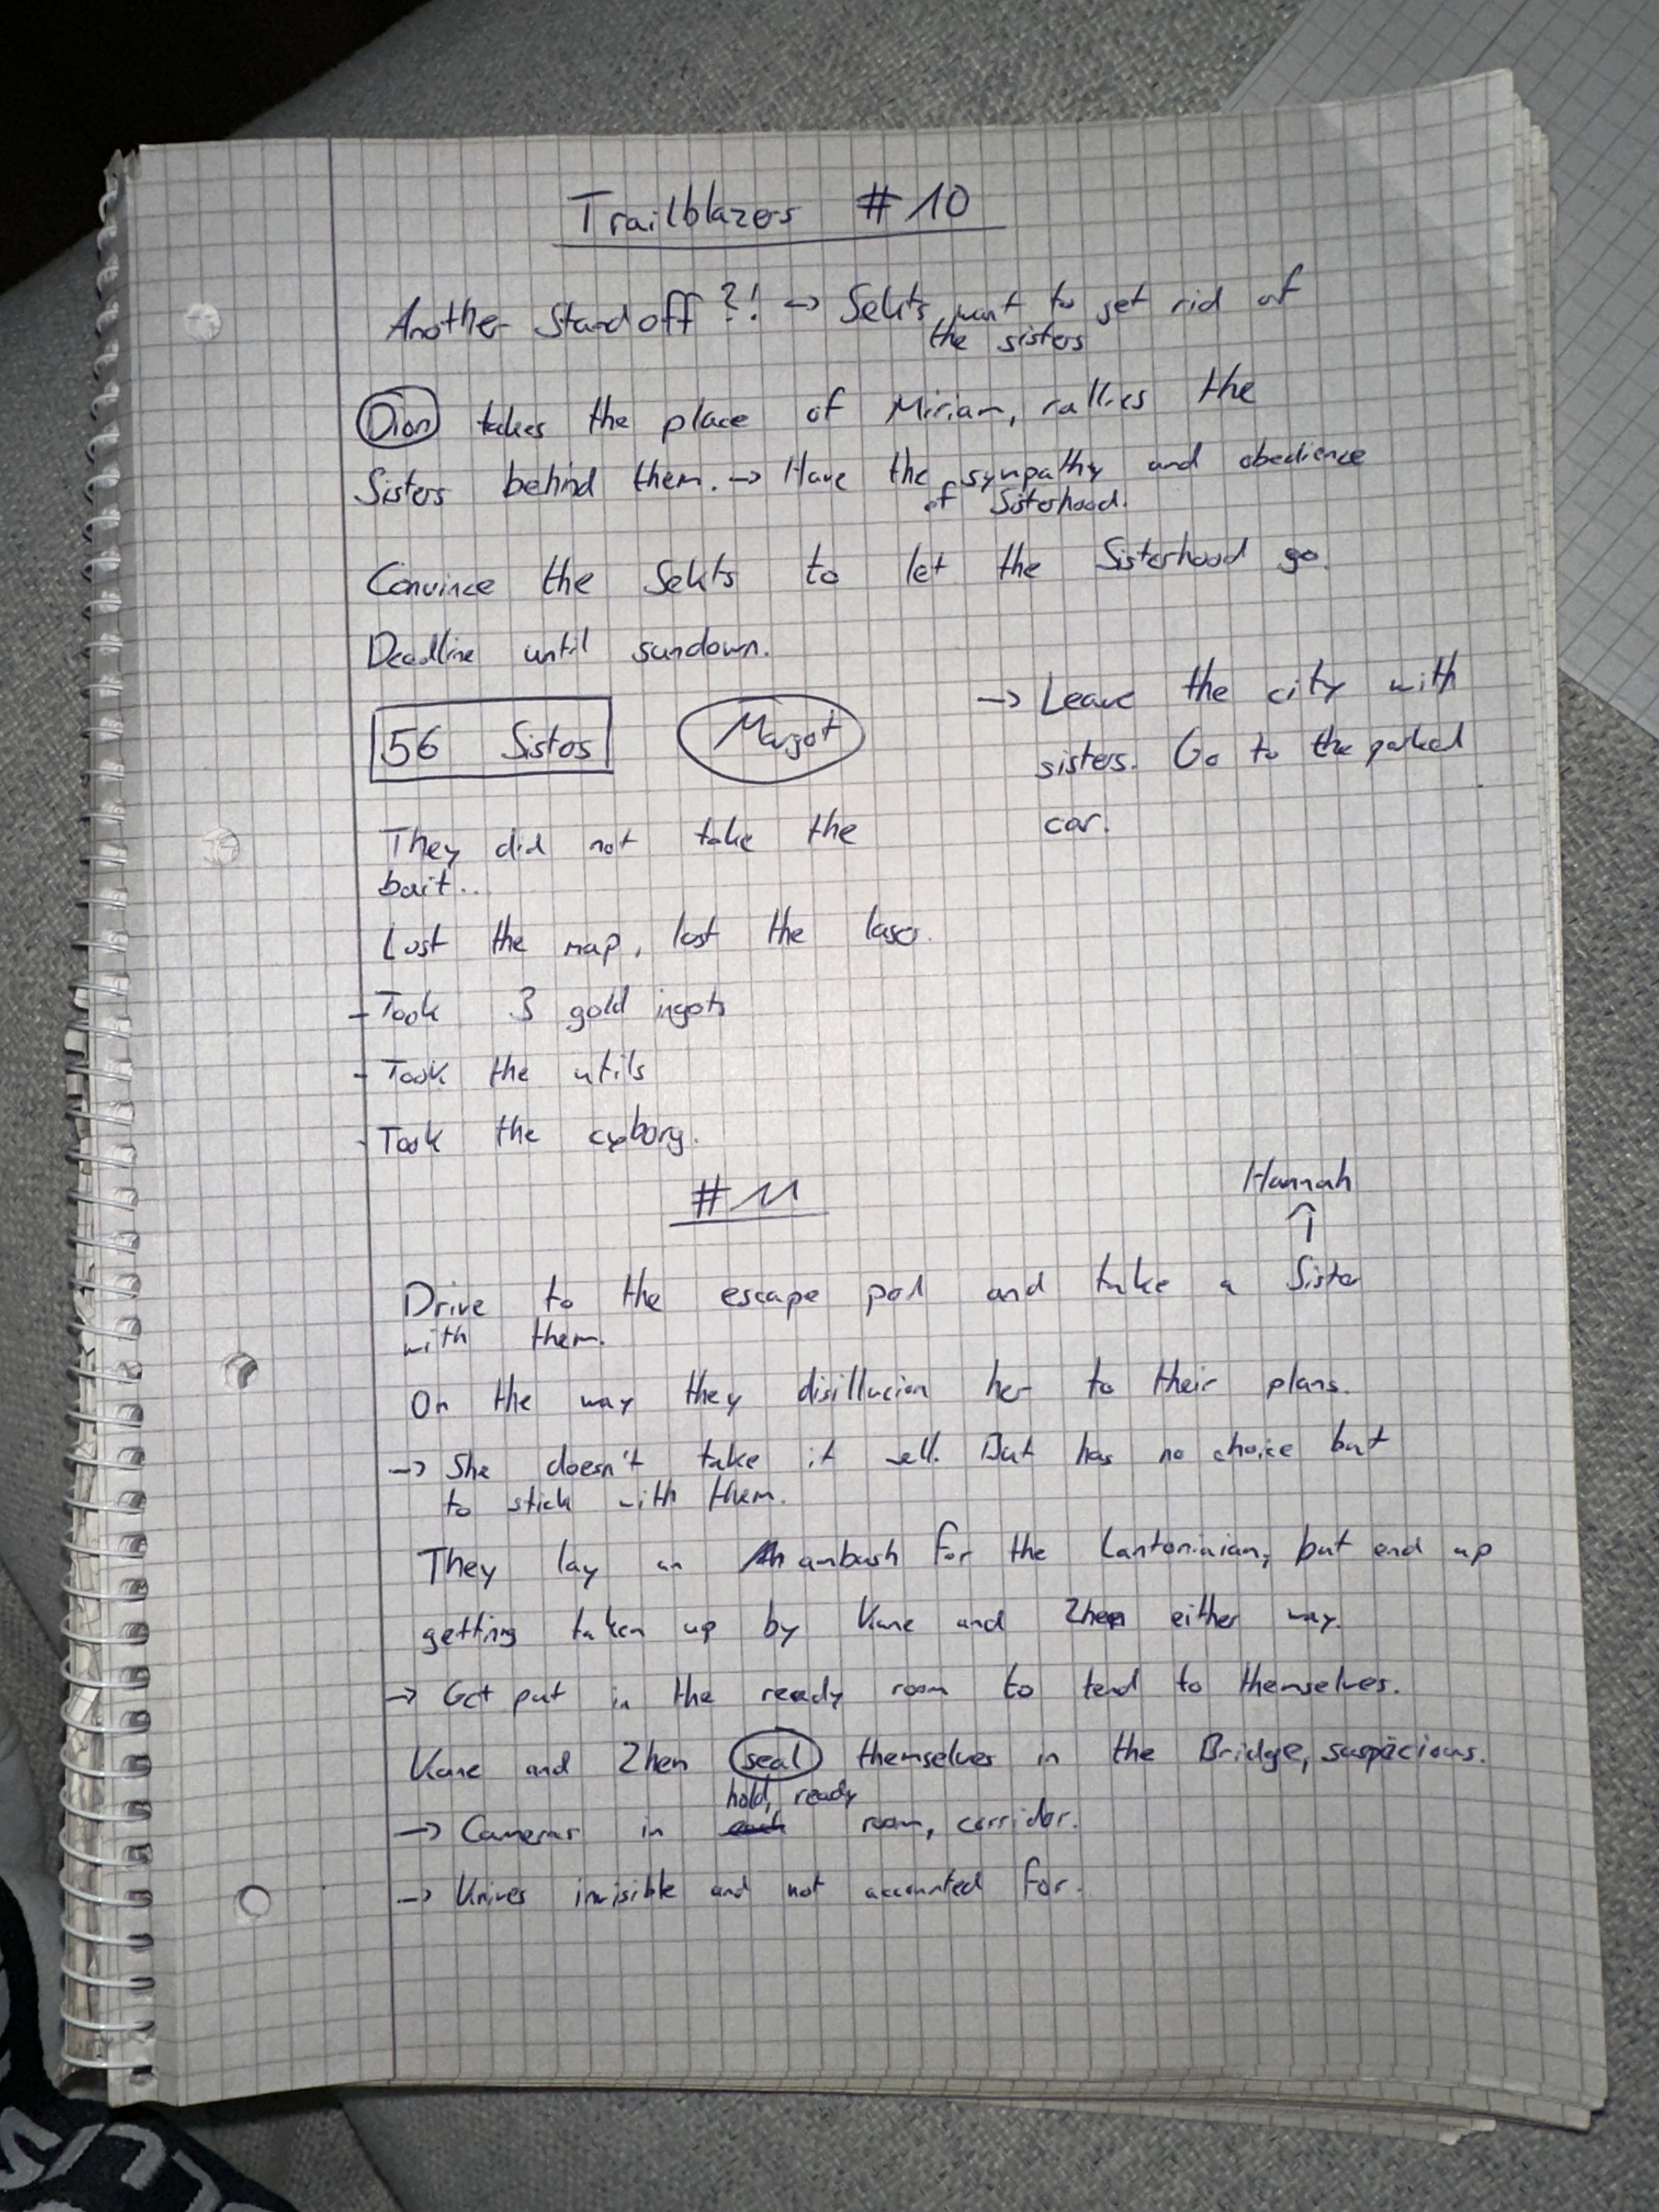 Trailblazers #10
Another Standoff?! -> Sekts want to get rid of
the sisters
Dion takes the place of Miriam, rallies the
Sisters behind them. -> Have the sympathy and obedience
of Sisterhood.
Convince the Sekts to let the Sisterhood go.
Deadline until sundown.
56 Sisters
Margot
-> Leave the city with
sisters. Go to the parked
car.
They did not take the
bait...
Lost the map, lost the laser.
- Took 3 gold ingots
- Took the utils
- Took the cyborg.
#11
Hannah
↑
Drive to the escape pod and take a Sister
with them.
On the way they disillusion her to their plans.
-> She doesn't take it well. But has no choice but
to stick with them.
They lay an ambush for the Lantoninian, but end up
getting taken up by Kane and Zhen either way.
-> Get put in the ready room to tend to themselves.
Kane and Zhen seal themselves in the Bridge, suspicious.
hold, ready
-> Cameras in each room, corridor.
-> Knives invisible and not accounted for.